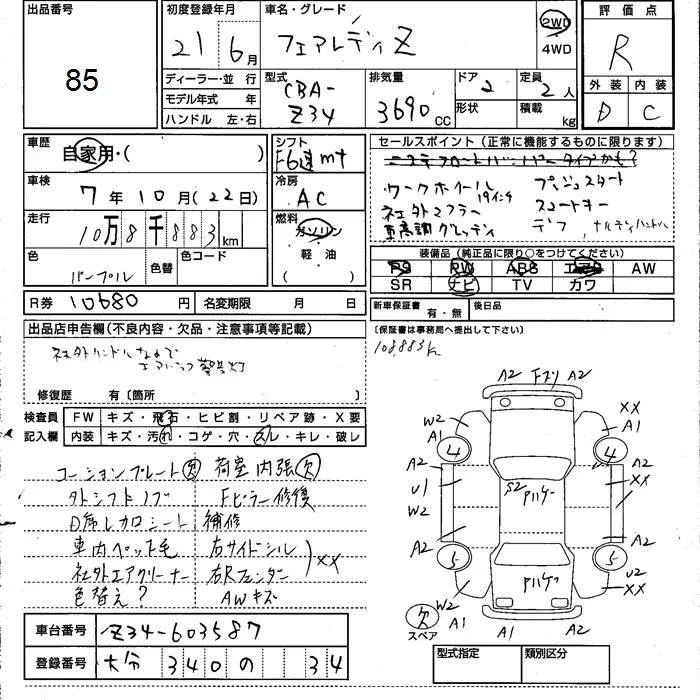 出品番号
85
初度登録年月
21 6月
車名・グレード
フェアレディ Z
2WD
4WD
評価点
R
外装 内装
D C
ディーラー・並行
モデル年式 年
ハンドル 左・右
型式
CBA-
Z34
排気量
3690cc
ドア
2
形状
定員
2人
積載
kg
車歴
自家用・( )
シフト
F6速mt
車検
7年10月(22日)
冷房
AC
走行
10万8千883km
燃料
ガソリン
軽油
( )
色
パープル
色替
色コード
R券 10680円
名変期限 月 日
セールスポイント(正常に機能するものに限ります)
ワークホイール 19インチ プッシュスタート
社外マフラー スマートキー
車高調 デフ ナルディハンドル
装備品(純正品に限り○をつけてください)
PS PW ABS AW
SR ナビ TV カワ
新車保証書 有・無
後日品
(保証書は事務局へ提出して下さい)
108,883k
出品店申告欄(不良内容・欠品・注意事項等記載)
社外ハンドルなので
エアバック警告灯
修復歴 有〔箇所 〕
検査員
記入欄
FW キズ・飛石・ヒビ割・リペア跡・X要
内装 キズ・汚れ・コゲ・穴・スレ・キレ・破レ
コーションプレート欠 荷室内張欠
外シフトノブ Fピラー修復
D席レカロシート 補修
車内ペット毛 右サイドシル
社外エアクリーナー 右Rフェンダー XX
色替え? AWキズ
車台番号 Z34-603587
登録番号 大分 340 の 34
A2 Fズリ A2
W2 XX
A1 A1
4 4
A2 A2
U1 S2 Pルーヤー XX
W2 W2
A2 A2
5 5
U2
W2 XX
欠 A1 A1 A2
スペア
型式指定 類別区分